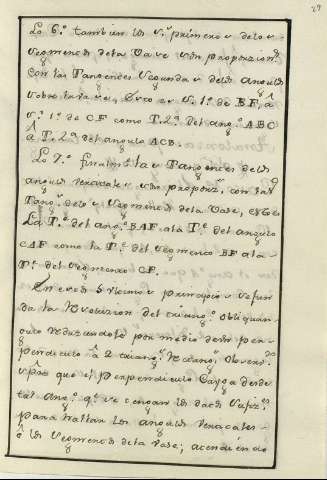 27
Lo 6º. tambien los S.ˢ primeros de los
Segmentos dela Vase son proporzion.ˢ
con las Tangentes Segundas delos angulos
sobre la Vase, Esto es S. 1º. de BF, â
S. 1º. de CF como T. 2ª. del ang.º ABC
â T. 2ª. del angulo ACB.
Lo 7º. finalm.ᵗᵉ las Tangentes delos
angulos verticales son proporz.ˢ con las
Tang.ˢ delos Segmentos dela Vase, Esto es
La Tᵉ. del ang.º BAF ala Tᵉ. del angulo
CAF como la Tᵉ. del Segmento BF ala
Tᵉ. del Segmento CF.
En estos ultimos principios se fun
da la Resoluzion del triang.º obliquan
gulo reduziendole por medio de un per
pendiculo â 2 triang.ˢ Rectang.ˢ
que el perpendiculo Caiga desde
tal ang.º q.ᵉ se tengan los datos
para hallar los angulos verticales
ô los Segmentos dela Vase,